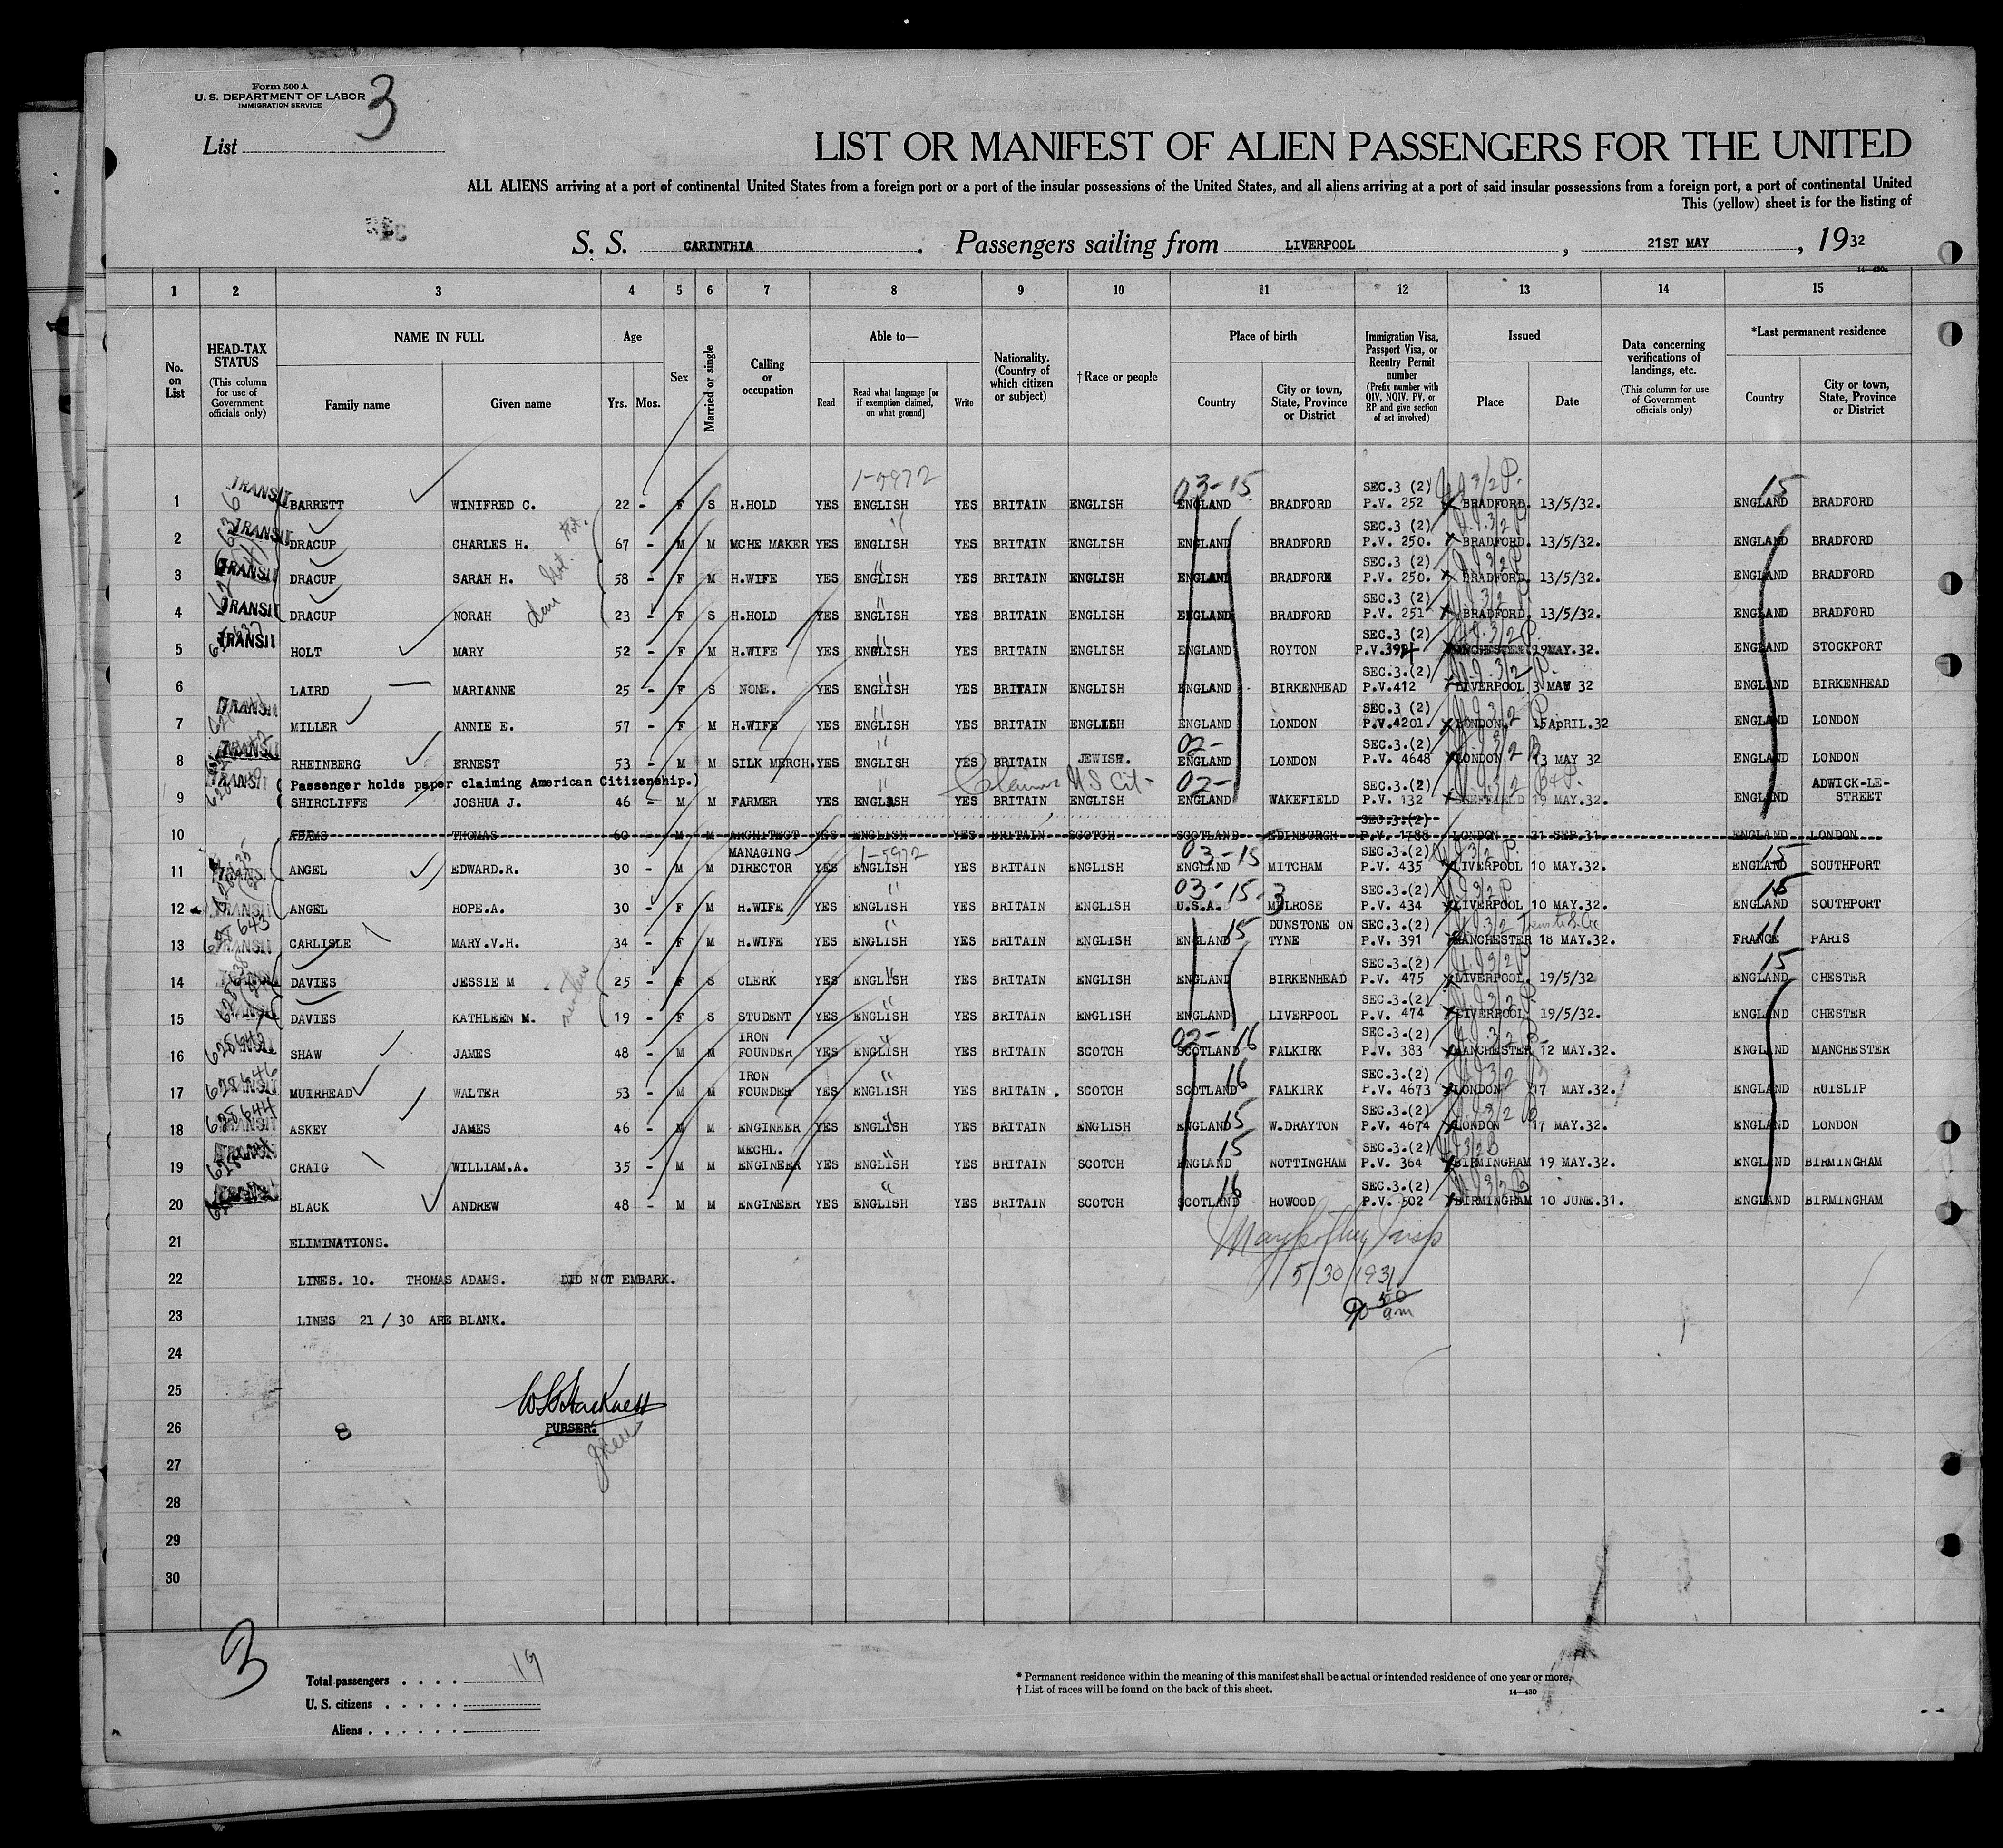 Form 500 A
U. S. DEPARTMENT OF LABOR
IMMIGRATION SERVICE
3
List
LIST OR MANIFEST OF ALIEN PASSENGERS FOR THE UNITED
ALL ALIENS arriving at a port of continental United States from a foreign port or a port of the insular possessions of the United States, and all aliens arriving at a port of said insular possessions from a foreign port, a port of continental United
This (yellow) sheet is for the listing of
S. S. CARINTHIA. Passengers sailing from LIVERPOOL, 21ST MAY, 1932
1 2 3 4 5 6 7 8 9 10 11 12 13 14 15
No. on List
HEAD-TAX STATUS (This column for use of Government officials only)
NAME IN FULL Family name Given name
Age Yrs. Mos.
Sex
Married or single
Calling or occupation
Able to— Read Read what language [or if exemption claimed, on what ground] Write
Nationality. (Country of which citizen or subject)
†Race or people
Place of birth Country City or town, State, Province or District
Immigration Visa, Passport Visa, or Reentry Permit number (Prefix number with QIV, NQIV, PV, or RP and give section of act involved)
Issued Place Date
Data concerning verifications of landings, etc. (This column for use of Government officials only)
*Last permanent residence Country City or town, State, Province or District
1 TRANSIT BARRETT WINIFRED C. 22 - F S H.HOLD YES ENGLISH YES BRITAIN ENGLISH 03-15 ENGLAND BRADFORD SEC.3 (2) P.V. 252 BRADFORD. 13/5/32. 15 ENGLAND BRADFORD
2 TRANSIT DRACUP CHARLES H. 67 - M M MCHE MAKER YES ENGLISH YES BRITAIN ENGLISH ENGLAND BRADFORD SEC.3 (2) P.V. 250. BRADFORD. 13/5/32. ENGLAND BRADFORD
3 TRANSIT DRACUP SARAH H. 58 - F M H.WIFE YES ENGLISH YES BRITAIN ENGLISH ENGLAND BRADFORD SEC.3 (2) P.V. 250. BRADFORD. 13/5/32. ENGLAND BRADFORD
4 TRANSIT DRACUP NORAH 23 - F S H.HOLD YES ENGLISH YES BRITAIN ENGLISH ENGLAND BRADFORD SEC.3 (2) P.V. 251 BRADFORD. 13/5/32. ENGLAND BRADFORD
5 TRANSIT HOLT MARY 52 - F M H.WIFE YES ENGLISH YES BRITAIN ENGLISH ENGLAND ROYTON SEC.3 (2) MANCHESTER. 19MAY.32. ENGLAND STOCKPORT
6 LAIRD MARIANNE 25 - F S NONE. YES ENGLISH YES BRITAIN ENGLISH ENGLAND BIRKENHEAD SEC.3.(2) P.V.412 LIVERPOOL 3 MAY 32 ENGLAND BIRKENHEAD
7 TRANSIT MILLER ANNIE E. 57 - F M H.WIFE YES ENGLISH YES BRITAIN ENGLISH ENGLAND LONDON SEC.3 (2) P.V.4201. LONDON. 15ApRIL.32 ENGLAND LONDON
8 TRANSIT RHEINBERG ERNEST 53 - M M SILK MERCH. YES ENGLISH YES BRITAIN JEWISH. 02- ENGLAND LONDON SEC.3.(2) P.V. 4648 LONDON 13 MAY 32 ENGLAND LONDON
( Passenger holds paper claiming American Citizenship.) Claims U S Cit-
9 TRANSIT SHIRCLIFFE JOSHUA J. 46 - M M FARMER YES ENGLISH YES BRITAIN ENGLISH 02- ENGLAND WAKEFIELD SEC.3.(2) P.V. 132 SHEFFIELD 19 MAY.32. ENGLAND ADWICK-LE-STREET
10 ADAMS THOMAS 60 - M M ARCHITECT YES ENGLISH YES BRITAIN SCOTCH SCOTLAND EDINBURGH SEC.3.(2) P.V. 1788 LONDON 21 SEP.31 ENGLAND LONDON
11 ANGEL EDWARD.R. 30 - M M MANAGING DIRECTOR YES ENGLISH YES BRITAIN ENGLISH 03-15 ENGLAND MITCHAM SEC.3.(2) P.V. 435 LIVERPOOL 10 MAY.32. 15 ENGLAND SOUTHPORT
12 TRANSIT ANGEL HOPE.A. 30 - F M H.WIFE YES ENGLISH YES BRITAIN ENGLISH 03-15-3 U.S.A. MELROSE SEC.3.(2) P.V. 434 LIVERPOOL 10 MAY.32. 15 ENGLAND SOUTHPORT
13 TRANSIT CARLISLE MARY.V.H. 34 - F M H.WIFE YES ENGLISH YES BRITAIN ENGLISH 15 ENGLAND DUNSTONE ON TYNE SEC.3.(2) P.V. 391 MANCHESTER 18 MAY.32. 11 FRANCE PARIS
14 DAVIES JESSIE M 25 - F S CLERK YES ENGLISH YES BRITAIN ENGLISH ENGLAND BIRKENHEAD SEC.3.(2) P.V. 475 LIVERPOOL. 19/5/32 15 ENGLAND CHESTER
sisters
15 DAVIES KATHLEEN M. 19 - F S STUDENT YES ENGLISH YES BRITAIN ENGLISH ENGLAND LIVERPOOL SEC.3.(2) P.V. 474 LIVERPOOL. 19/5/32. ENGLAND CHESTER
16 SHAW JAMES 48 - M M IRON FOUNDER YES ENGLISH YES BRITAIN SCOTCH 02-16 SCOTLAND FALKIRK SEC.3.(2) P.V. 383 MANCHESTER 12 MAY.32. ENGLAND MANCHESTER
17 628646 TRANSIT MUIRHEAD WALTER 53 - M M IRON FOUNDER YES ENGLISH YES BRITAIN . SCOTCH 16 SCOTLAND FALKIRK SEC.3.(2) P.V. 4673 LONDON 17 MAY.32. ENGLAND RUISLIP
18 628644 TRANSIT ASKEY JAMES 46 - M M ENGINEER YES ENGLISH YES BRITAIN ENGLISH 15 ENGLAND W.DRAYTON SEC.3.(2) P.V. 4674 LONDON 17 MAY.32. ENGLAND LONDON
19 CRAIG WILLIAM.A. 35 - M M MECHL. ENGINEER YES ENGLISH YES BRITAIN SCOTCH 15 ENGLAND NOTTINGHAM SEC.3.(2) P.V. 364 BIRMINGHAM 19 MAY.32. ENGLAND BIRMINGHAM
20 BLACK ANDREW 48 - M M ENGINEER YES ENGLISH YES BRITAIN SCOTCH 16 SCOTLAND HOWOOD SEC.3.(2) P.V. 502 BIRMINGHAM 10 JUNE.31. ENGLAND BIRMINGHAM
21 ELIMINATIONS.
22 LINES. 10. THOMAS ADAMS. DID NOT EMBARK.
5/30/1931
23 LINES 21 / 30 ARE BLANK.
24
25
26 8 PURSER.
27
28
29
30
3
Total passengers . . . . 19
U. S. citizens . . . . .
Aliens . . . . . .
* Permanent residence within the meaning of this manifest shall be actual or intended residence of one year or more.
† List of races will be found on the back of this sheet.
14—430